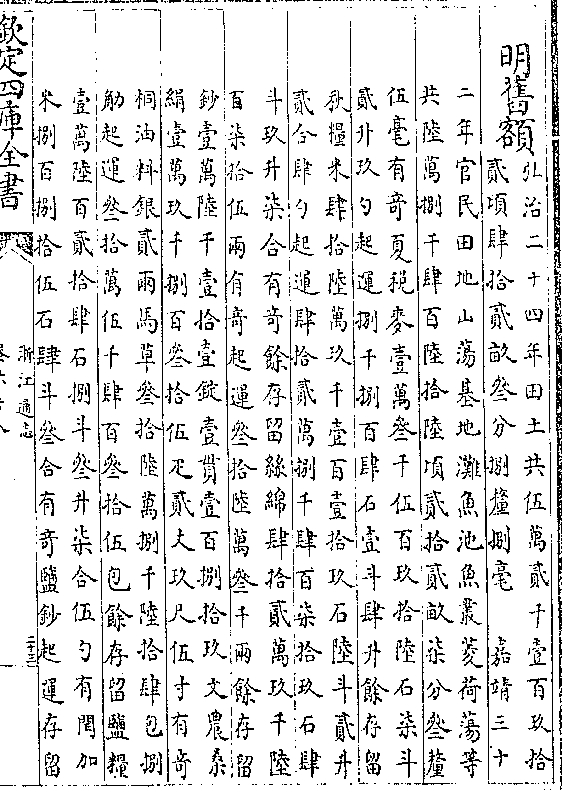 明舊額
弘治二十四年田土共伍萬貳千壹百玖拾
貳頃肆拾貳畝叁分捌釐捌毫 嘉靖三十
二年官民田地山蕩基地灘魚池魚叢菱荷蕩等
共陸萬捌千肆百陸拾陸頃貳拾貳畝柒分叁釐
伍毫有奇夏税麥壹萬叁千伍百玖拾陸石柒斗
貳升玖勺起運捌千捌百肆石壹斗肆升餘存留
秋糧米肆拾陸萬玖千壹百壹拾玖石陸斗貳升
貳合肆勺起運肆拾貳萬捌千肆百柒拾玖石肆
斗玖升柒合有奇餘存留絲綿肆拾貳萬玖千陸
百柒拾伍兩有奇起運叁拾陸萬叁千兩餘存留
鈔壹萬陸千壹拾壹錠壹貫壹百捌拾玖文農桑
絹壹萬玖千捌百叁拾伍疋貳丈玖尺伍寸有奇
桐油料銀貳兩馬草叁拾陸萬捌千陸拾肆包捌
觔起運叁拾萬伍千肆百叁拾伍包餘存留鹽糧
壹萬陸百貳拾肆石捌斗叁升柒合伍勺有閏加
米捌百捌拾伍石肆斗叁合有奇鹽鈔起運存留
欽定四庫全書
浙江通志
二十三